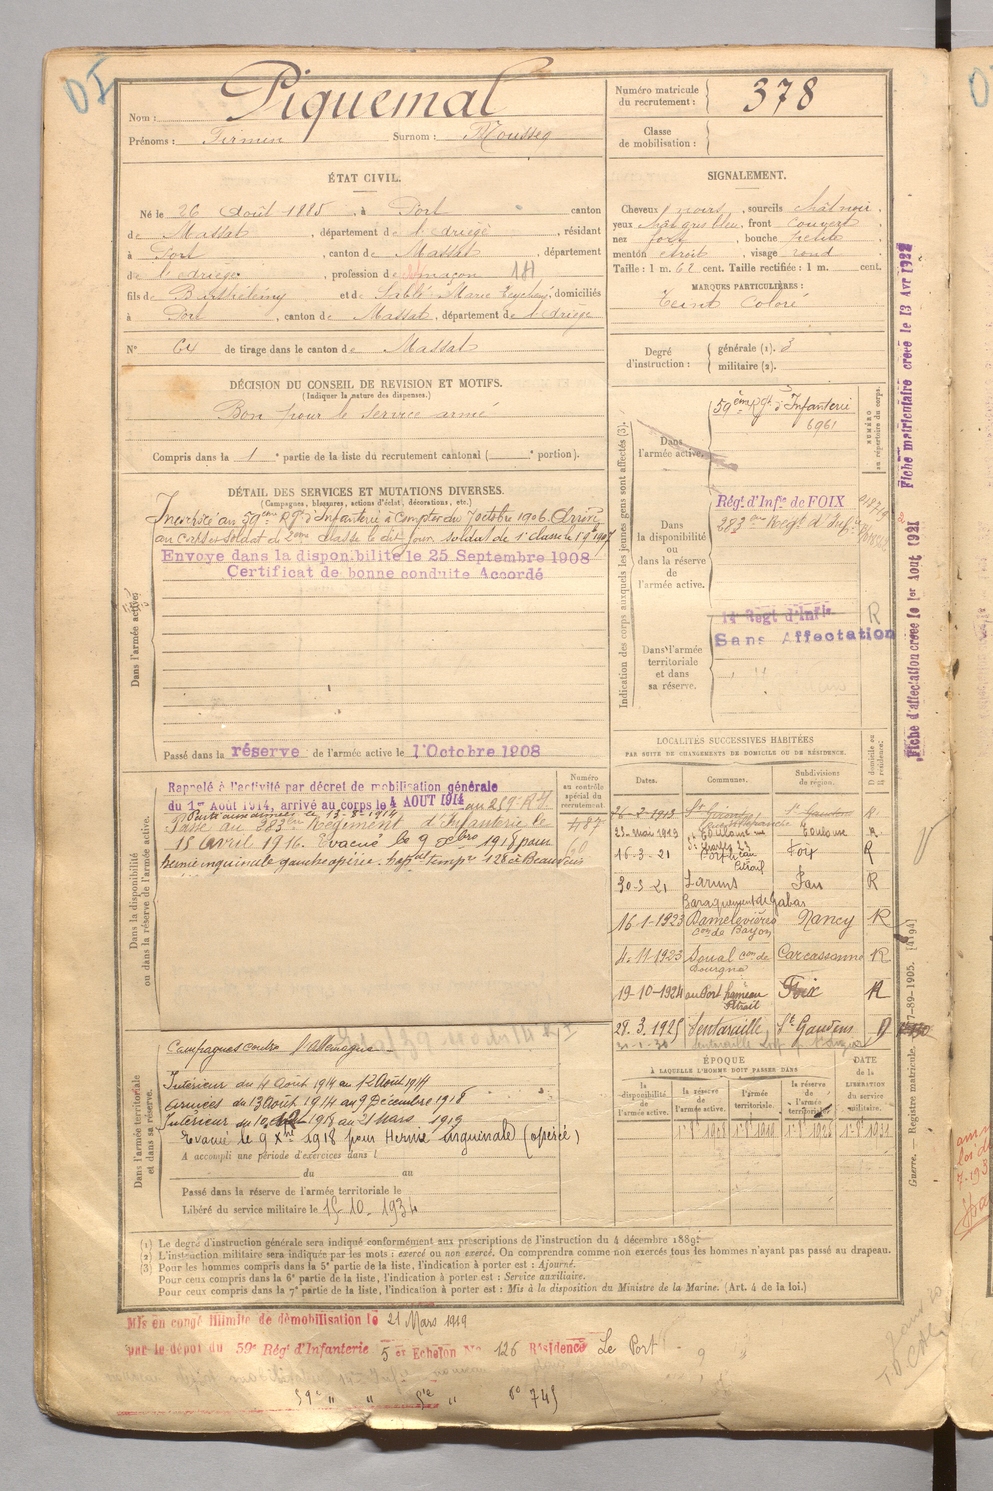 Nom : Piquemal
Prénoms : Firmin Surnom : Rousseg
Numéro matricule du recrutement : 378
Classe de mobilisation :
ÉTAT CIVIL.
Né le 26 Août 1885, à Port canton
de Massat, département de l'Ariège, résidant
à Port, canton de Massat, département
de l'Ariège, profession de maçon 181
fils de Barthélémy et de Sablé Marie, domiciliés
à Port, canton de Massat, département de l'Ariège
N° 64 de tirage dans le canton de Massat
SIGNALEMENT.
Cheveux noirs, sourcils chât noir,
yeux chât gris bleu, front couvert
nez fort, bouche petite
menton étroit, visage rond
Taille : 1 m. 62 cent. Taille rectifiée : 1 m. cent.
MARQUES PARTICULIÈRES :
Teint coloré
Degré d'instruction : générale (1). 3
militaire (2).
DÉCISION DU CONSEIL DE REVISION ET MOTIFS.
(Indiquer la nature des dispenses.)
Bon pour le service armé
Compris dans la 1e partie de la liste du recrutement cantonal ( e portion).
DÉTAIL DES SERVICES ET MUTATIONS DIVERSES.
(Campagnes, blessures, actions d'éclat, décorations, etc.)
Incorporé au 59ème Rgt d'Infanterie à compter du 7 octobre 1906. Arrivé
au corps et soldat de 2ème classe le dit jour soldat de 1e classe le
Envoyé dans la disponibilité le 25 Septembre 1908
Certificat de bonne conduite Accordé
Dans l'armée active.
Passé dans la réserve de l'armée active le 1er Octobre 1908
Indication des corps auxquels les jeunes gens sont affectés (3).
NUMÉRO au répertoire du corps.
Dans l'armée active.
59ème Rgt d'Infanterie
6961
Dans la disponibilité ou dans la réserve de l'armée active.
Régt d'Infie de FOIX
283me Régt d'Infie
Dans l'armée territoriale et dans sa réserve.
14e Régt d'Infie R
Sans Affectation
Fiche matriculaire créée le 13 Avr 1922
Fiche d'affectation créée le 1er Aout 1921
Dans la disponibilité ou dans la réserve de l'armée active.
Numéro au contrôle spécial du recrutement
487
Rappelé à l'activité par décret de mobilisation générale
du 1er Août 1914, arrivé au corps le 4 AOUT 1914 au 259e R.I.
Parti aux armées le 13-8-1914
Passé au 283ème Régiment d'Infanterie le
15 Avril 1916. Evacué le 9 xbre 1918 pour
hernie inguinale gauche opérée, hopital tempre 128 à Beauvais
LOCALITÉS SUCCESSIVES HABITÉES
PAR SUITE DE CHANGEMENTS DE DOMICILE OU DE RÉSIDENCE.
Dates. Communes. Subdivisions de région. D domicile ou R résidence.
16-2-1913 St Girons St Gaudens R
23-mai 1913 Toulouse Toulouse R
16-3-21 Foix R
30-3-21 Laruns Pau R
Baraquement de Gabas
16-1-1923 Damelevières Nancy R
con de Bayon
4-11-1923 Soual con de Dourgne Carcassonne R
19-10-1924 au Port hameau Etroit Foix R
29.3.1925 Sentaraille St Gaudens D
Dans l'armée territoriale et dans sa réserve.
Campagnes contre l'Allemagne
Intérieur du 4 Août 1914 au 12 Août 1914
Armées du 13 Août 1914 au 9 Décembre 1918
Intérieur du 10 1918 au 21 Mars 1919
Evacué le 9 Xbre 1918 pour Hernie inguinale (opéré)
A accompli une période d'exercices dans l
du au
Passé dans la réserve de l'armée territoriale le
Libéré du service militaire le 15-10-1934
ÉPOQUE
À LAQUELLE L'HOMME DOIT PASSER DANS
DATE de la LIBÉRATION du service militaire.
la disponibilité de l'armée active. la réserve de l'armée active. l'armée territoriale. la réserve de l'armée territoriale.
Guerre. — Registre matricule. 37-89-1905. [4194]
(1) Le degré d'instruction générale sera indiqué conformément aux prescriptions de l'instruction du 4 décembre 1889.
(2) L'instruction militaire sera indiquée par les mots : exercé ou non exercé. On comprendra comme non exercés tous les hommes n'ayant pas passé au drapeau.
(3) Pour les hommes compris dans la 5e partie de la liste, l'indication à porter est : Ajourné.
Pour ceux compris dans la 6e partie de la liste, l'indication à porter est : Service auxiliaire.
Pour ceux compris dans la 7e partie de la liste, l'indication à porter est : Mis à la disposition du Ministre de la Marine. (Art. 4 de la loi.)
Mis en congé illimité de démobilisation le 21 Mars 1919
par le dépôt du 59e Régt d'Infanterie 5 er Echelon No 126 Résidence Le Port
59e " " 5e " No 745